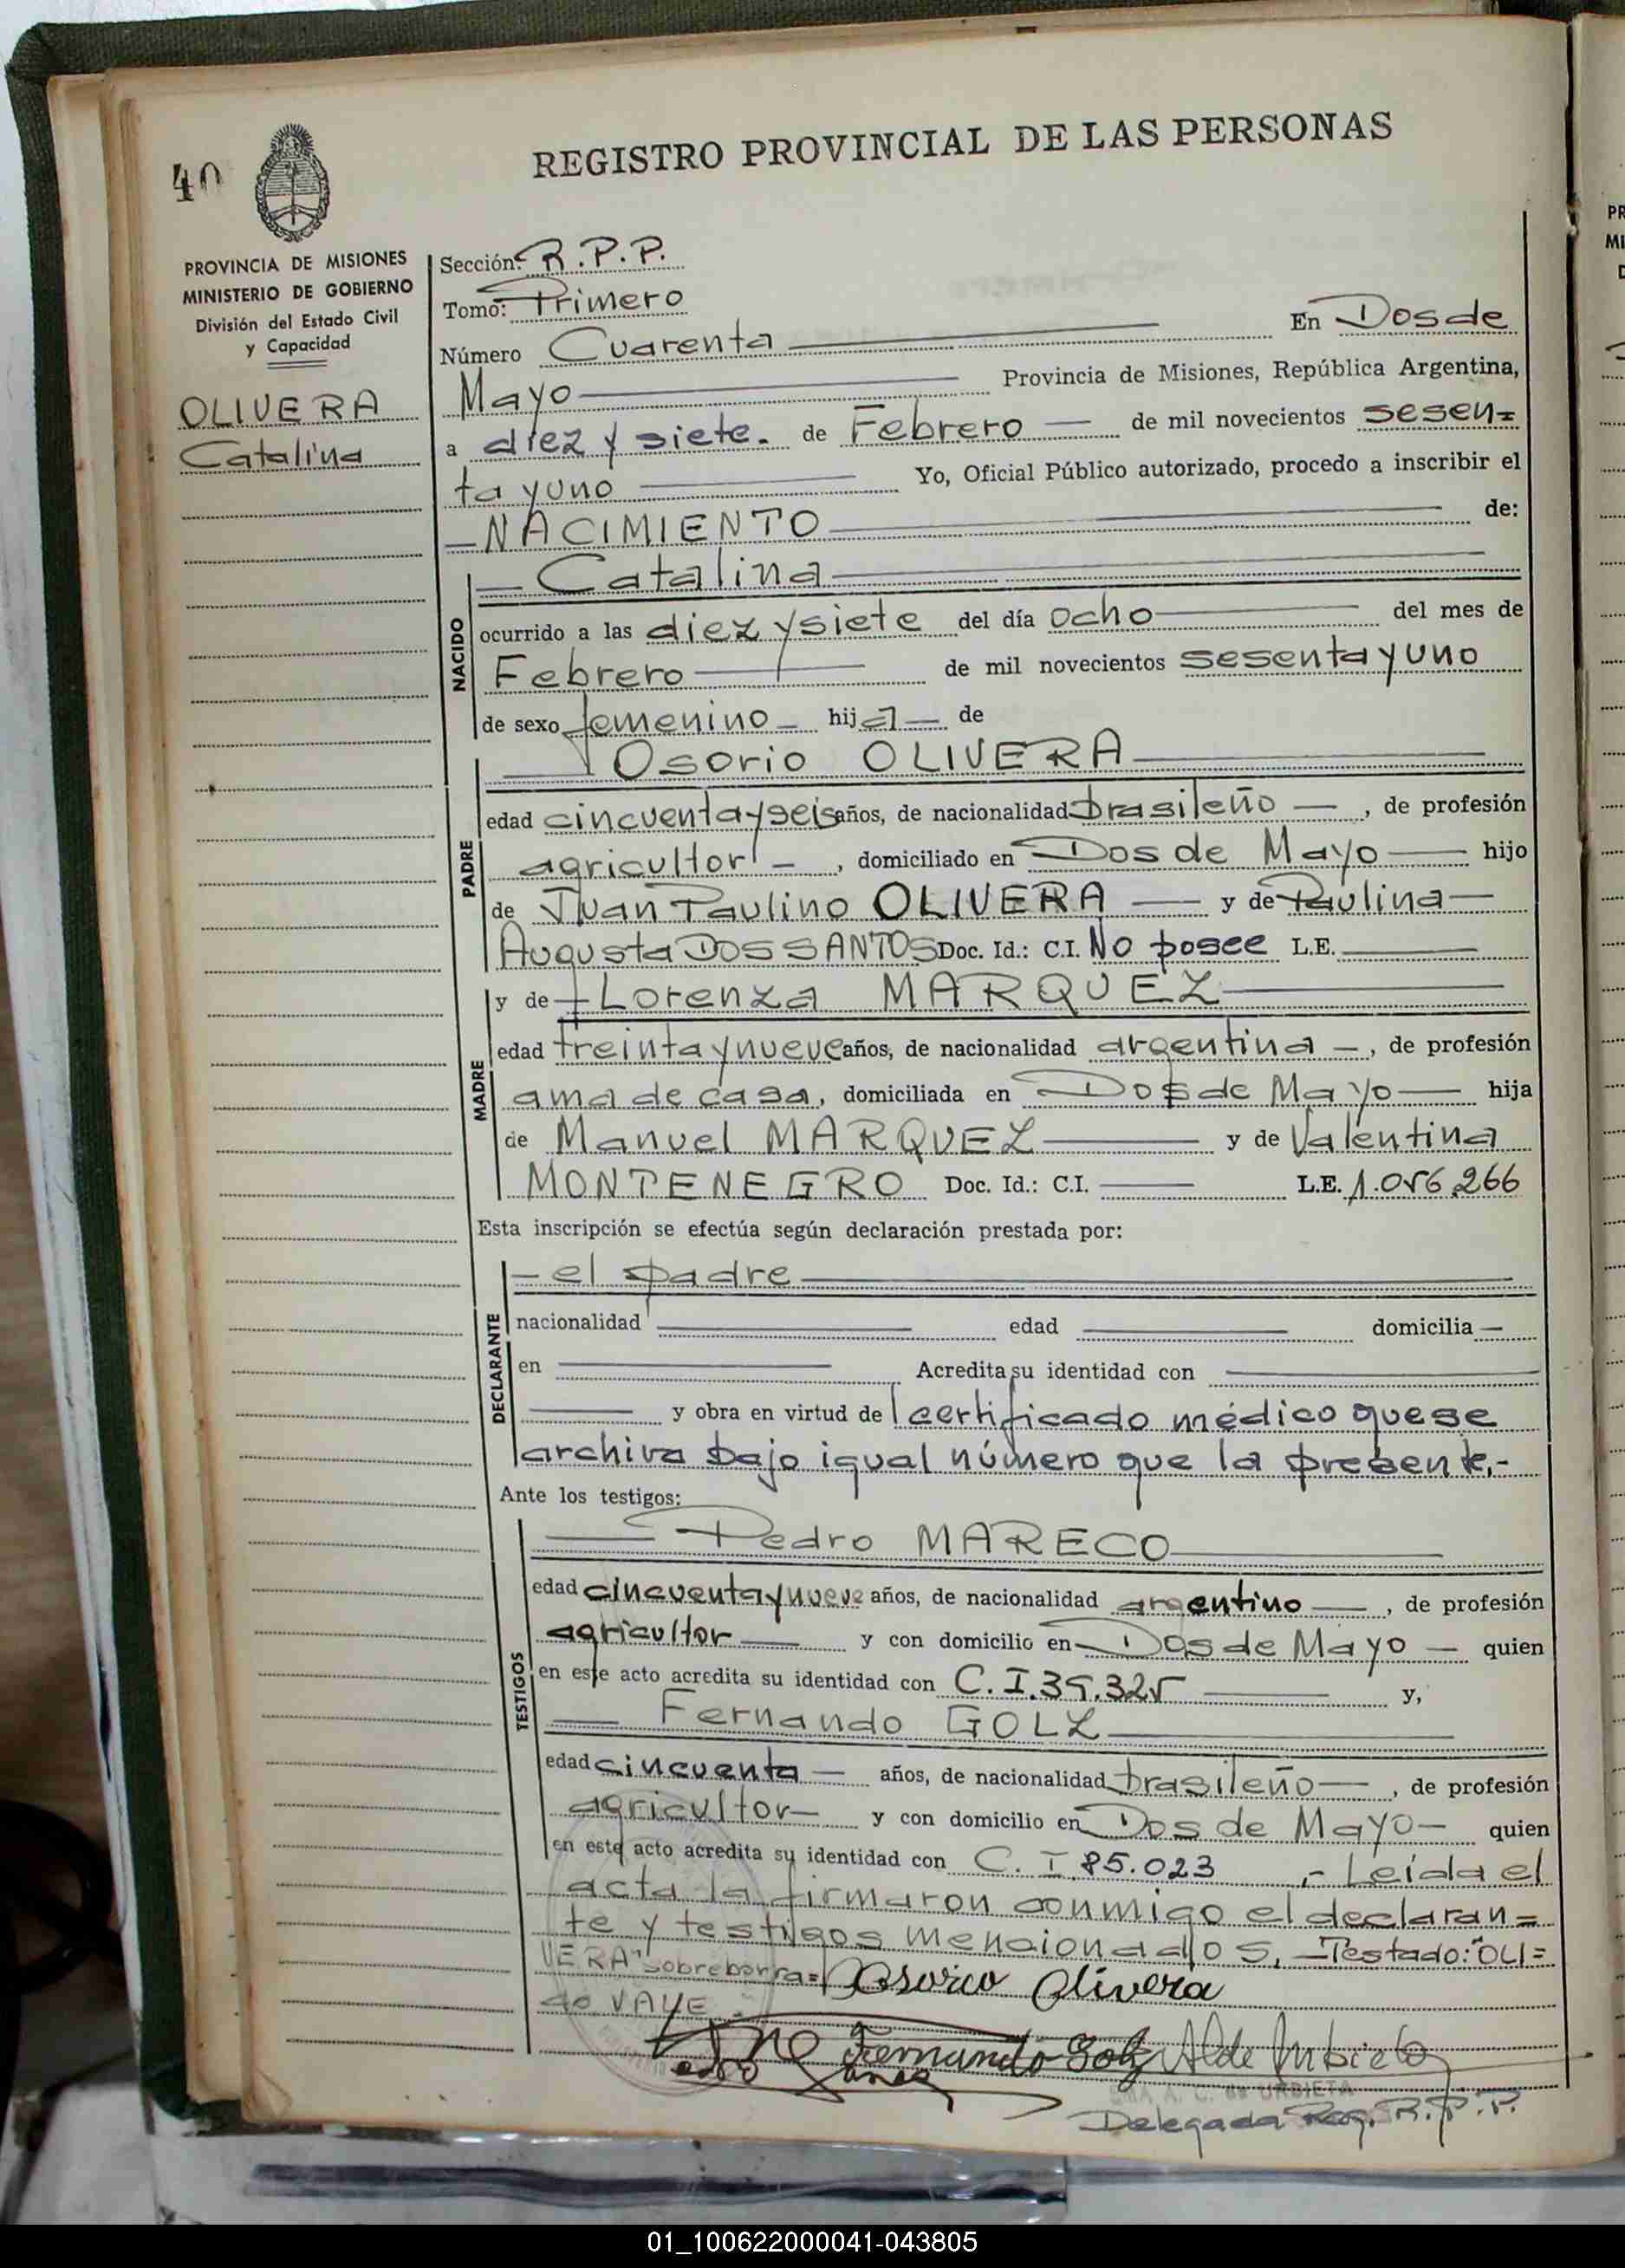 40
REGISTRO PROVINCIAL DE LAS PERSONAS
PROVINCIA DE MISIONES
MINISTERIO DE GOBIERNO
División del Estado Civil
y Capacidad
OLIVERA
Catalina
Sección: R.P.P.
Tomo: Primero
Número Cuarenta En Dos de
Mayo Provincia de Misiones, República Argentina,
a diez y siete. de Febrero de mil novecientos sesen=
ta y uno Yo, Oficial Público autorizado, procedo a inscribir el
NACIMIENTO de:
NACIDO
Catalina
ocurrido a las diez y siete del día ocho del mes de
Febrero de mil novecientos sesenta y uno
de sexo femenino hija de
PADRE
Osorio OLIVERA
edad cincuenta y seis años, de nacionalidad brasileño, de profesión
agricultor, domiciliado en Dos de Mayo hijo
de Juan Paulino OLIVERA y de Paulina
Augusta DOS SANTOS Doc. Id.: C.I. No posee L.E.
MADRE
y de Lorenza MARQUEZ
edad treinta y nueve años, de nacionalidad argentina, de profesión
ama de casa, domiciliada en Dos de Mayo hija
de Manuel MARQUEZ y de Valentina
MONTENEGRO Doc. Id.: C.I. L.E. 1.056.266
Esta inscripción se efectúa según declaración prestada por:
DECLARANTE
el padre
nacionalidad edad domicilia
en Acredita su identidad con
y obra en virtud de certificado médico que se
archiva bajo igual número que la presente.-
Ante los testigos:
TESTIGOS
Pedro MARECO
edad cincuenta y nueve años, de nacionalidad argentino, de profesión
agricultor y con domicilio en Dos de Mayo quien
en este acto acredita su identidad con C.I. 39.325 y,
Fernando GOLZ
edad cincuenta años, de nacionalidad brasileño, de profesión
agricultor y con domicilio en Dos de Mayo quien
en este acto acredita su identidad con C. I 85.023 .- Leída el
acta la firmaron conmigo el declaran=
te y testigos mencionados. -Testado: "OLI=
VERA" sobreborra=
do VALE.-
Osorio Olivera
Fernando Golz
C. de URBIETA
Delegada Reg. R.P.P.
01_100622000041-043805